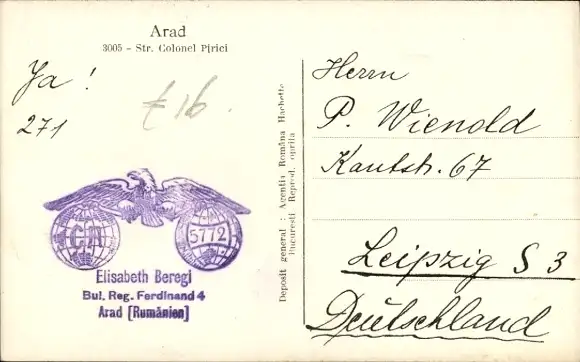 Arad
3005 - Str. Colonel Pirici
Ja !
271
£ 16.
5772
Elisabeth Beregi
Bul. Reg. Ferdinand 4
Arad [Rumänien]
Deposit general : Agentia Româna Hachette
Bucuresti Reprod. oprita
Herrn
P. Wienold
Kantstr. 67
Leipzig S 3
Deutschland